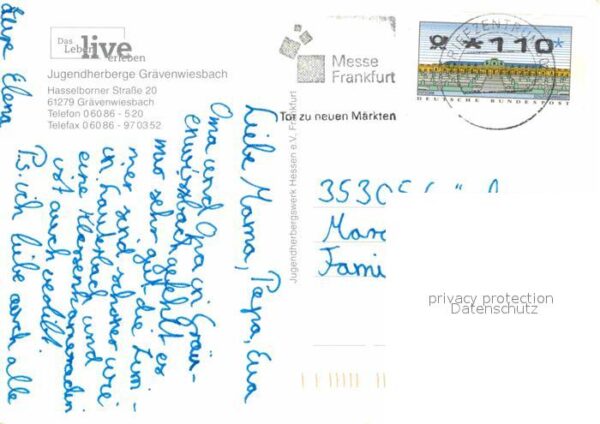 Das
Leben live
erleben
Jugendherberge Grävenwiesbach
Hasselborner Straße 20
61279 Grävenwiesbach
Telefon 0 60 86 - 5 20
Telefax 0 60 86 - 97 03 52
Messe
Frankfurt
Tor zu neuen Märkten
*110*
BRIEFZENTRUM
DEUTSCHE BUNDESPOST
Jugendherbergswerk Hessen e.V. Frankfurt
Liebe Mama, Papa, Eva
Oma und Opa in Gräv-
enwiesbach gefehlt es
mir sehr gut, die Zim-
mer sind schöner wie
in Lauterbach und
eine Klassenkameradin
ist auch verliebt.
P.S. ich liebe euch alle
Eure Elena
Fami
privacy protection
Datenschutz